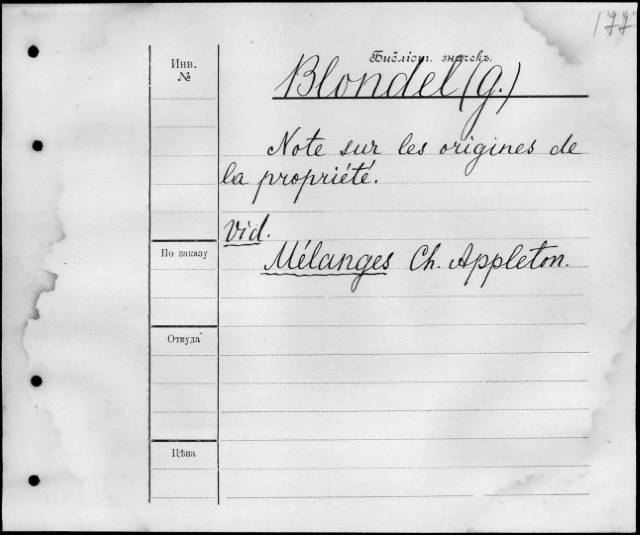 177
Библіот. значекъ.
Инв.
№
Blondel (G.)
Note sur les origines de
la propriété.
Vid.
По заказу
Mélanges Ch. Appleton.
Откуда
Цѣна